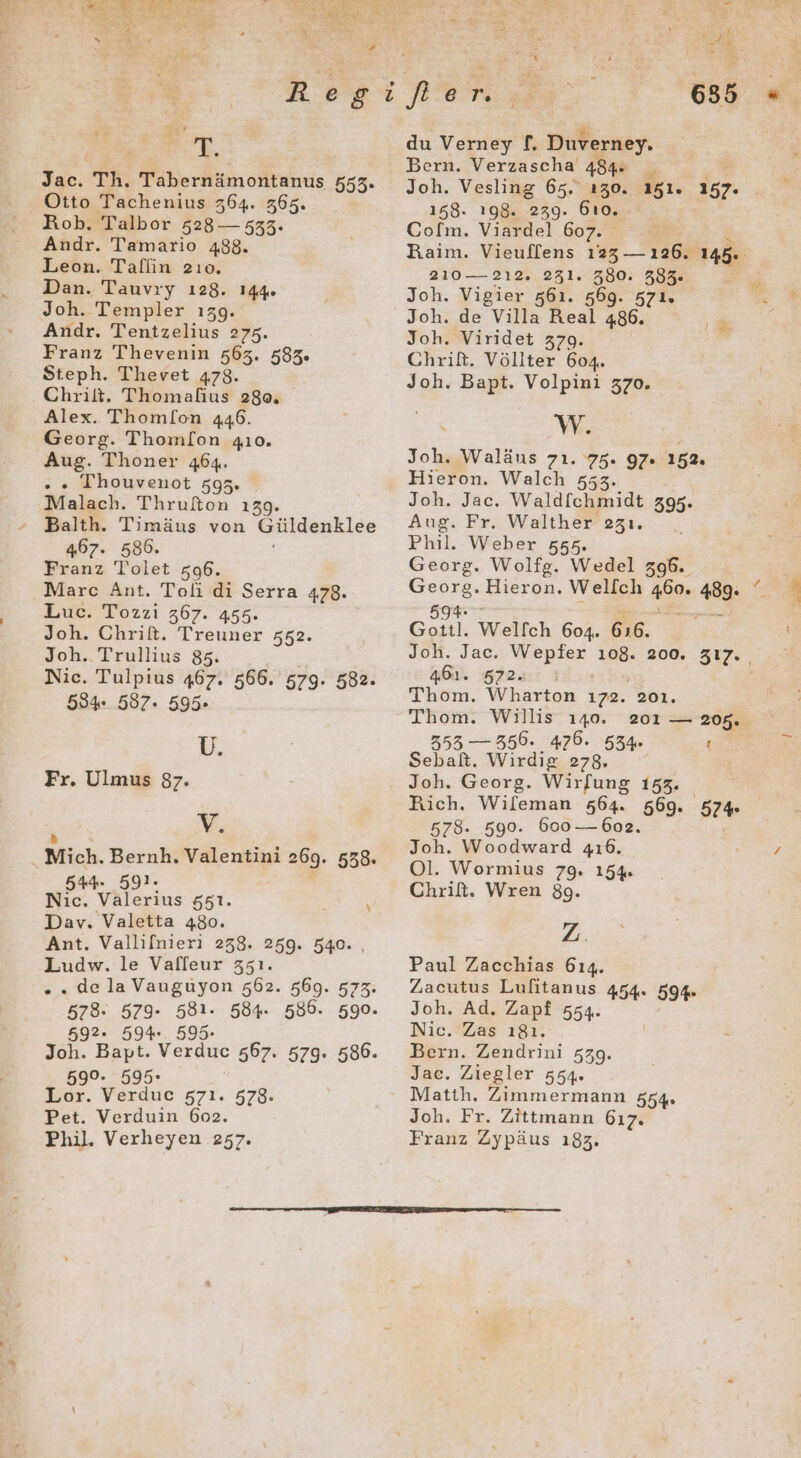 Regiſter. 635
T.
Jac. Th. Tabernämontanus 553.
Otto Tachenius 364. 365.
Rob. Talbor 528—533.
Andr. Tamario 488.
Leon. Taſſin 210.
Dan. Tauvry 128. 144.
Joh. Templer 139.
Andr. Tentzelius 275.
Franz Thevenin 563. 583.
Steph. Thevet 478.
Chriſt. Thomaſius 280.
Alex. Thomſon 446.
Georg. Thomſon 410.
Aug. Thoner 464.
. . Thouvenot 593.
Malach. Thruſton 139.
Balth. Timäus von Güldenklee
467. 586.
Franz Tolet 596.
Marc Ant. Toſi di Serra 478.
Luc. Tozzi 367. 455.
Joh. Chriſt. Treuner 552.
Joh. Trullius 85.
Nic. Tulpius 467. 566. 579. 582.
584. 587. 595.
U.
Fr. Ulmus 87.
V.
Mich. Bernh. Valentini 269. 538.
544. 591.
Nic. Valerius 551.
Dav. Valetta 480.
Ant. Valliſnieri 238. 259. 540.
Ludw. le Vaſſeur 351.
. . de la Vauguyon 562. 569. 573.
578. 579. 581. 584. 586. 590.
592. 594. 595.
Joh. Bapt. Verduc 567. 579. 586.
590. 595.
Lor. Verduc 571. 578.
Pet. Verduin 602.
Phil. Verheyen 257.
du Verney ſ. Duverney.
Bern. Verzascha 484.
Joh. Vesling 65. 130. 151. 157.
158. 198. 239. 610.
Coſm. Viardel 607.
Raim. Vieuſſens 123—126. 145.
210—212. 231. 380. 383.
Joh. Vigier 561. 569. 571.
Joh. de Villa Real 486.
Joh. Viridet 379.
Chriſt. Völlter 604.
Joh. Bapt. Volpini 370.
W.
Joh. Waläus 71. 75. 97. 152.
Hieron. Walch 553.
Joh. Jac. Waldſchmidt 395.
Aug. Fr. Walther 231.
Phil. Weber 555.
Georg. Wolfg. Wedel 396.
Georg. Hieron. Welſch 460. 489.
594.
Gottl. Welſch 604. 616.
Joh. Jac. Wepfer 108. 200. 317.
461. 572.
Thom. Wharton 172. 201.
Thom. Willis 140. 201 — 205.
353 — 356. 476. 534.
Sebaſt. Wirdig 278.
Joh. Georg. Wirſung 153.
Rich. Wiſeman 564. 569. 574.
578. 590. 600—602.
Joh. Woodward 416.
Ol. Wormius 79. 154.
Chriſt. Wren 89.
Z.
Paul Zacchias 614.
Zacutus Luſitanus 454. 594.
Joh. Ad. Zapf 554.
Nic. Zas 181.
Bern. Zendrini 539.
Jac. Ziegler 554.
Matth. Zimmermann 554.
Joh. Fr. Zittmann 617.
Franz Zypäus 183.